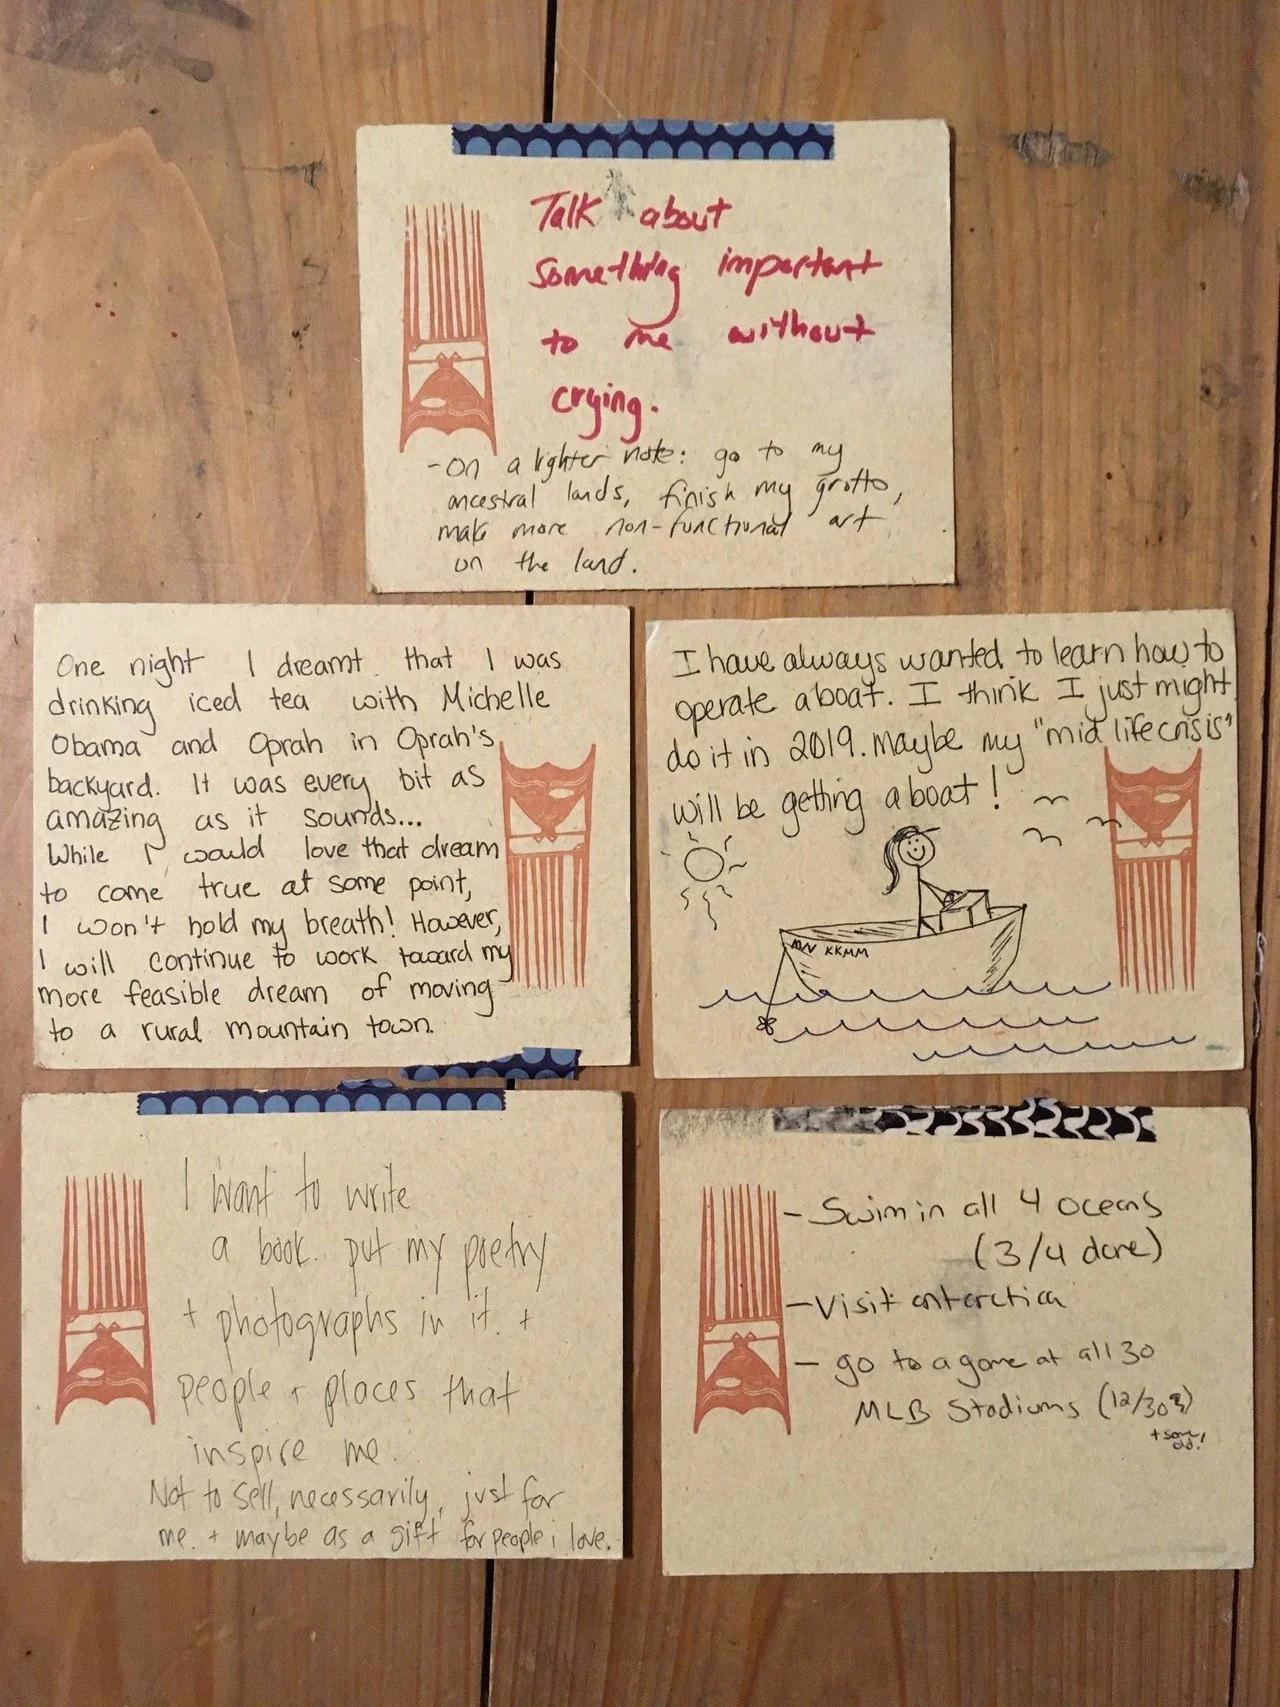 Talk about
something important
to me without
crying.
- On a lighter note: go to my
ancestral lands, finish my grotto,
make more non-functional art
on the land.
One night I dreamt that I was
drinking iced tea with Michelle
Obama and Oprah in Oprah's
backyard. It was every bit as
amazing as it sounds...
While I would love that dream
to come true at some point,
I won't hold my breath! However,
I will continue to work toward my
more feasible dream of moving
to a rural mountain town.
I have always wanted to learn how to
operate a boat. I think I just might
do it in 2019. Maybe my "mid life crisis"
will be getting a boat!
KKMM
I want to write
a book. put my poetry
+ photographs in it. +
people + places that
inspire me.
Not to sell, necessarily, just for
me. + maybe as a gift for people i love.
- Swim in all 4 oceans
(3/4 done)
- Visit antarctica
- go to a game at all 30
MLB Stadiums (12/30
+ some
old!